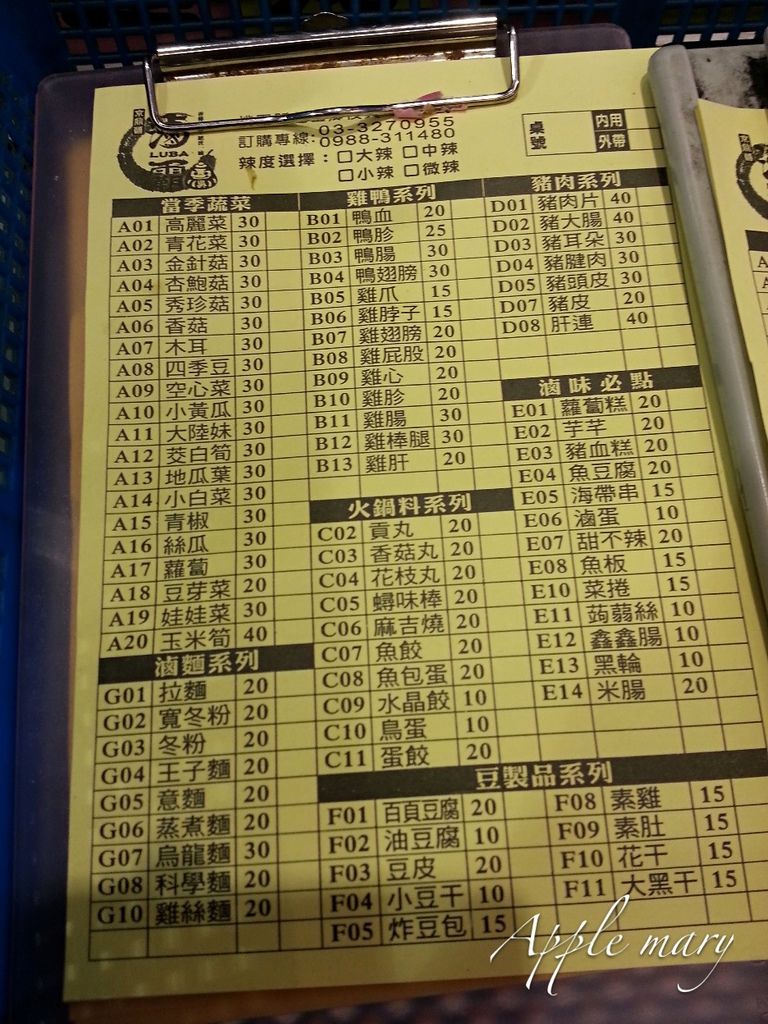 京鼎爾
LUBA
滷
霸
03-3270955
訂購專線:0988-311480
辣度選擇：□大辣 □中辣
□小辣 □微辣
桌號 內用
外帶
當季蔬菜
A01 高麗菜 30
A02 青花菜 30
A03 金針菇 30
A04 杏鮑菇 30
A05 秀珍菇 30
A06 香菇 30
A07 木耳 30
A08 四季豆 30
A09 空心菜 30
A10 小黃瓜 30
A11 大陸妹 30
A12 茭白筍 30
A13 地瓜葉 30
A14 小白菜 30
A15 青椒 30
A16 絲瓜 30
A17 蘿蔔 30
A18 豆芽菜 20
A19 娃娃菜 30
A20 玉米筍 40
滷麵系列
G01 拉麵 20
G02 寬冬粉 20
G03 冬粉 20
G04 王子麵 20
G05 意麵 20
G06 蒸煮麵 20
G07 烏龍麵 30
G08 科學麵 20
G10 雞絲麵 20
雞鴨系列
B01 鴨血 20
B02 鴨胗 25
B03 鴨腸 30
B04 鴨翅膀 30
B05 雞爪 15
B06 雞脖子 15
B07 雞翅膀 20
B08 雞屁股 20
B09 雞心 20
B10 雞胗 20
B11 雞腸 30
B12 雞棒腿 30
B13 雞肝 20
火鍋料系列
C02 貢丸 20
C03 香菇丸 20
C04 花枝丸 20
C05 蟳味棒 20
C06 麻吉燒 20
C07 魚餃 20
C08 魚包蛋 20
C09 水晶餃 10
C10 鳥蛋 10
C11 蛋餃 20
豬肉系列
D01 豬肉片 40
D02 豬大腸 40
D03 豬耳朵 30
D04 豬腱肉 30
D05 豬頭皮 30
D07 豬皮 20
D08 肝連 40
滷味必點
E01 蘿蔔糕 20
E02 芋芊 20
E03 豬血糕 20
E04 魚豆腐 20
E05 海帶串 15
E06 滷蛋 10
E07 甜不辣 20
E08 魚板 15
E10 菜捲 15
E11 蒟蒻絲 10
E12 鑫鑫腸 10
E13 黑輪 10
E14 米腸 20
豆製品系列
F01 百頁豆腐 20
F02 油豆腐 10
F03 豆皮 20
F04 小豆干 10
F05 炸豆包 15
F08 素雞 15
F09 素肚 15
F10 花干 15
F11 大黑干 15
Apple mary